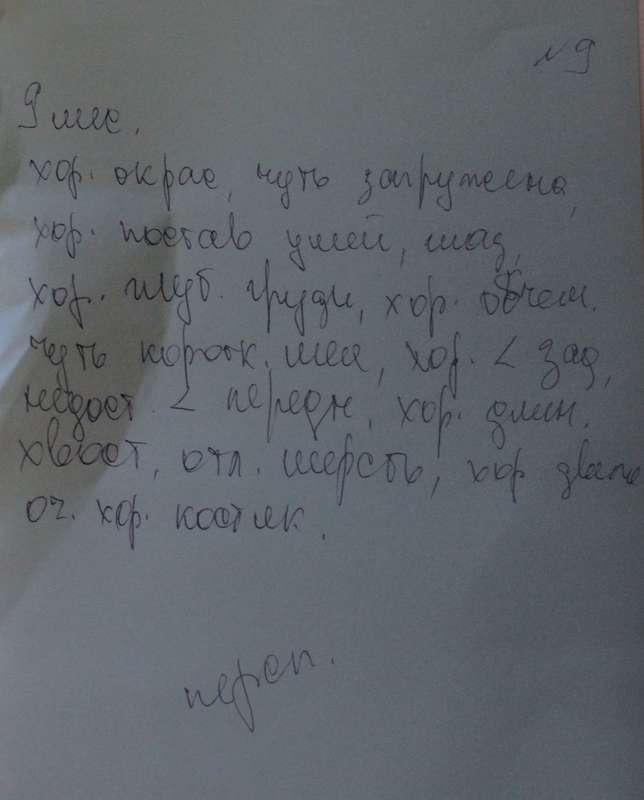 №9
9 мес.
хор. окрас, чуть загружена,
хор. постав ушей, глаз,
хор. глуб. груди, хор. объем.
чуть коротк. шея, хор. < зад,
недост. < передн, хор. длин.
хвост, отл. шерсть, хор движ
оч. хор. костяк.
персп.